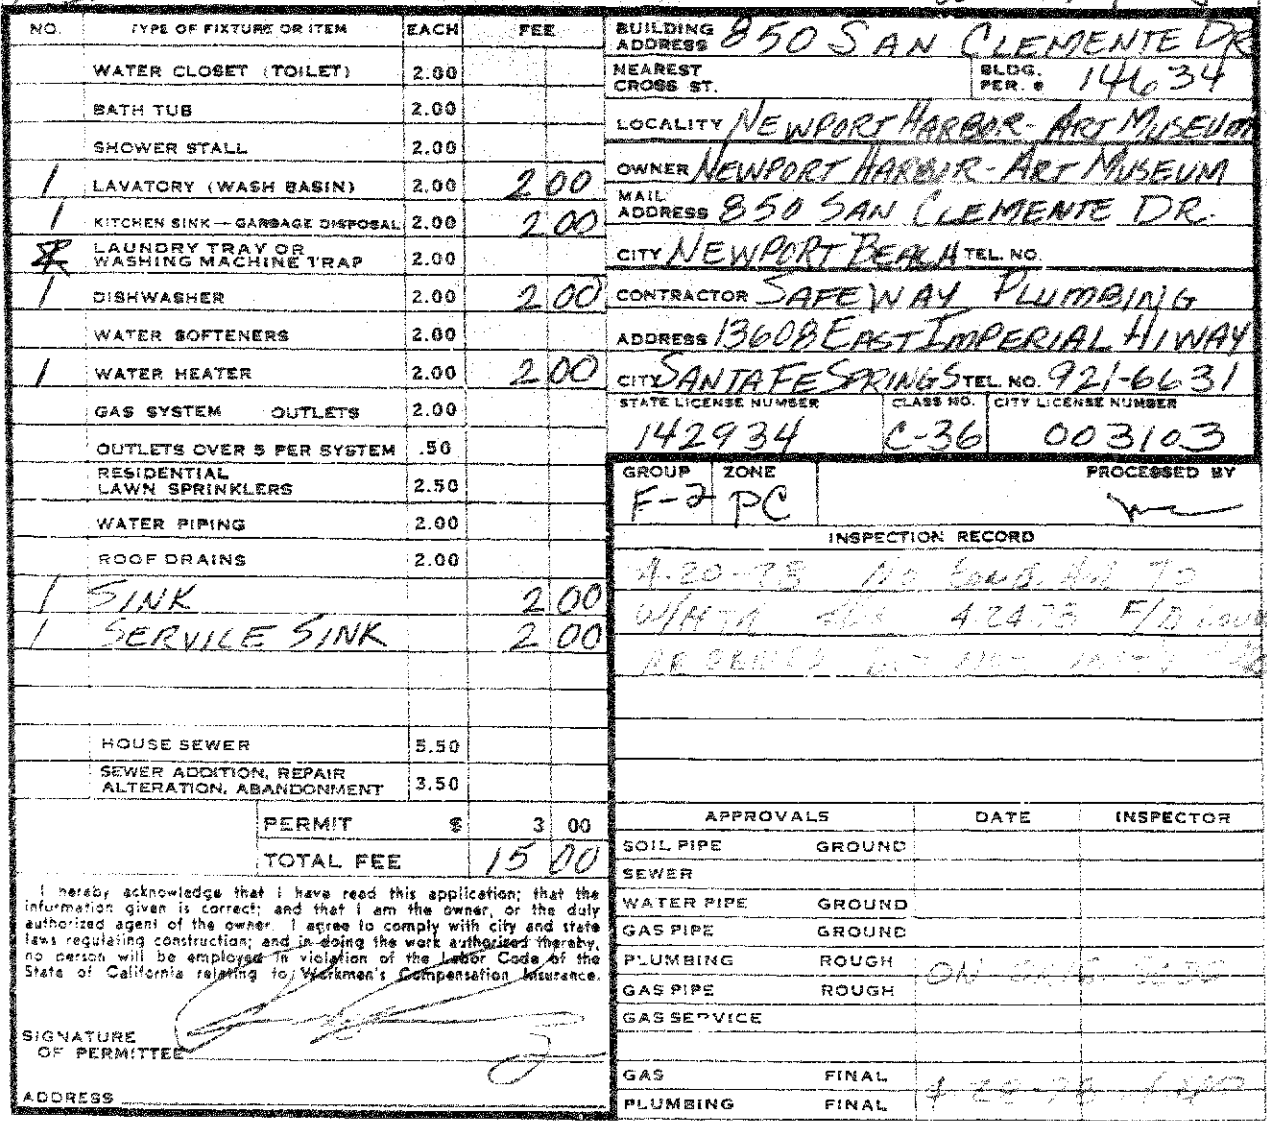 NO. TYPE OF FIXTURE OR ITEM EACH FEE
WATER CLOSET (TOILET) 2.00
BATH TUB 2.00
SHOWER STALL 2.00
1 LAVATORY (WASH BASIN) 2.00 2 00
1 KITCHEN SINK — GARBAGE DISPOSAL 2.00 2 00
LAUNDRY TRAY OR
WASHING MACHINE TRAP 2.00
1 DISHWASHER 2.00 2 00
WATER SOFTENERS 2.00
1 WATER HEATER 2.00 2 00
GAS SYSTEM OUTLETS 2.00
OUTLETS OVER 5 PER SYSTEM .50
RESIDENTIAL
LAWN SPRINKLERS 2.50
WATER PIPING 2.00
ROOF DRAINS 2.00
1 SINK 2 00
1 SERVICE SINK 2 00
HOUSE SEWER 5.50
SEWER ADDITION, REPAIR
ALTERATION, ABANDONMENT 3.50
PERMIT $ 3 00
TOTAL FEE 15 00
I hereby acknowledge that I have read this application; that the
information given is correct; and that I am the owner, or the duly
authorized agent of the owner. I agree to comply with city and state
laws regulating construction; and in doing the work authorized thereby,
no person will be employed in violation of the Labor Code of the
State of California relating to Workmen's Compensation Insurance.
SIGNATURE
OF PERMITTEE
ADDRESS
BUILDING
ADDRESS 850 SAN CLEMENTE DR
NEAREST
CROSS ST.
BLDG.
PER. # 144634
LOCALITY NEWPORT HARBOR - ART MUSEUM
OWNER NEWPORT HARBOR - ART MUSEUM
MAIL
ADDRESS 850 SAN CLEMENTE DR.
CITY NEWPORT BEACH TEL. NO.
CONTRACTOR SAFEWAY PLUMBING
ADDRESS 13608 EAST IMPERIAL HIWAY
CITY SANTA FE SPRINGS TEL. NO. 921-6631
STATE LICENSE NUMBER CLASS NO. CITY LICENSE NUMBER
142934 C-36 003103
GROUP ZONE PROCESSED BY
F-2 PC
INSPECTION RECORD
4.20-78 NO TO
4.24.78 F/D
APPROVALS DATE INSPECTOR
SOIL PIPE GROUND
SEWER
WATER PIPE GROUND
GAS PIPE GROUND
PLUMBING ROUGH
ON
GAS PIPE ROUGH
GAS SERVICE
GAS FINAL
PLUMBING FINAL